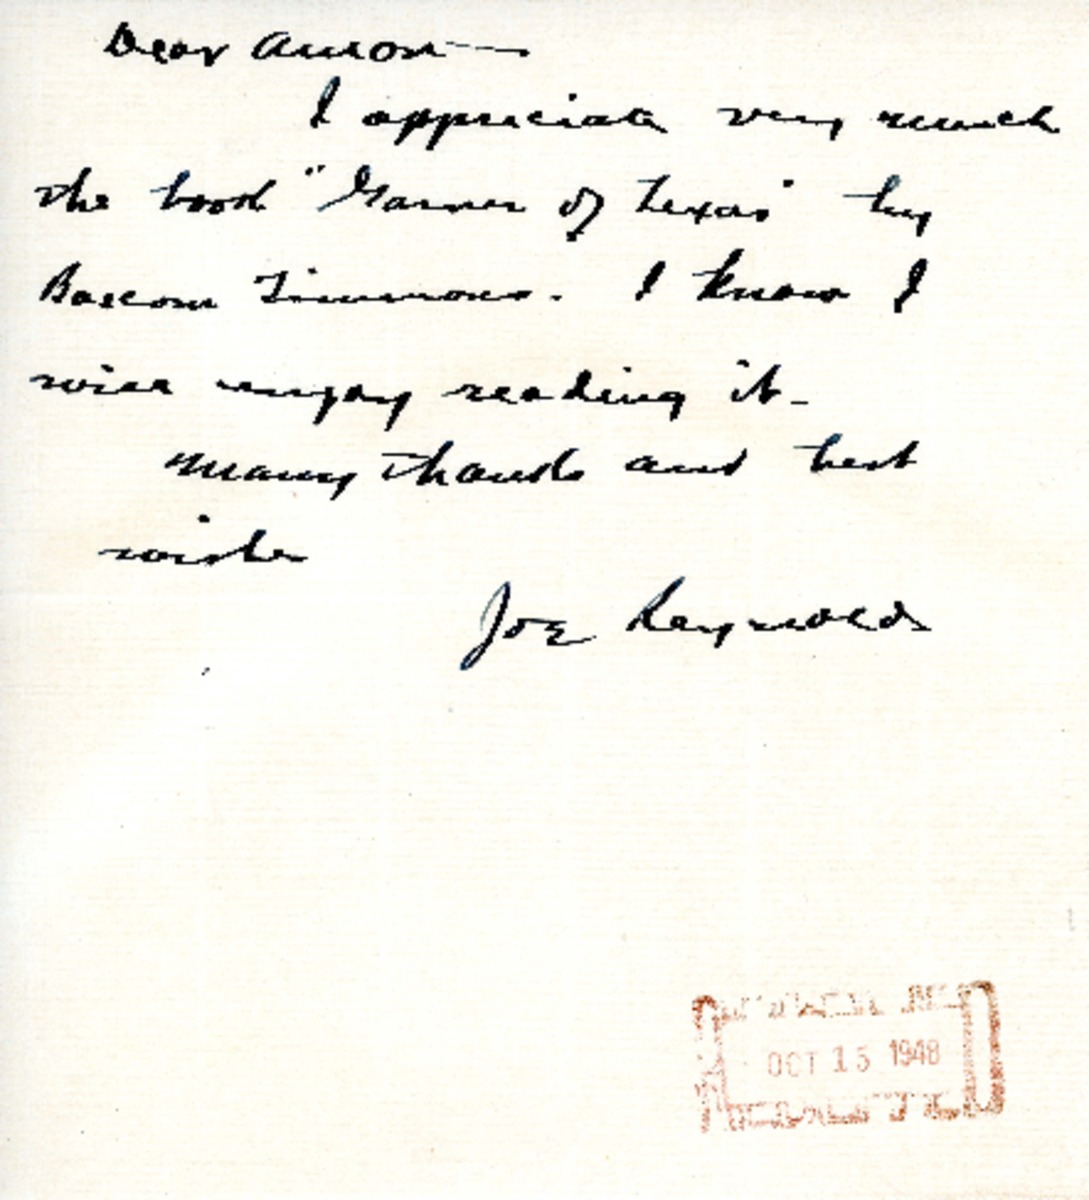 Dear Amon—
I appreciate very much
the book "Garner of Texas" by
Bascom Timmons. I know I
will enjoy reading it—
Many thanks and best
wishes
Joe Reynolds
OCT 15 1948